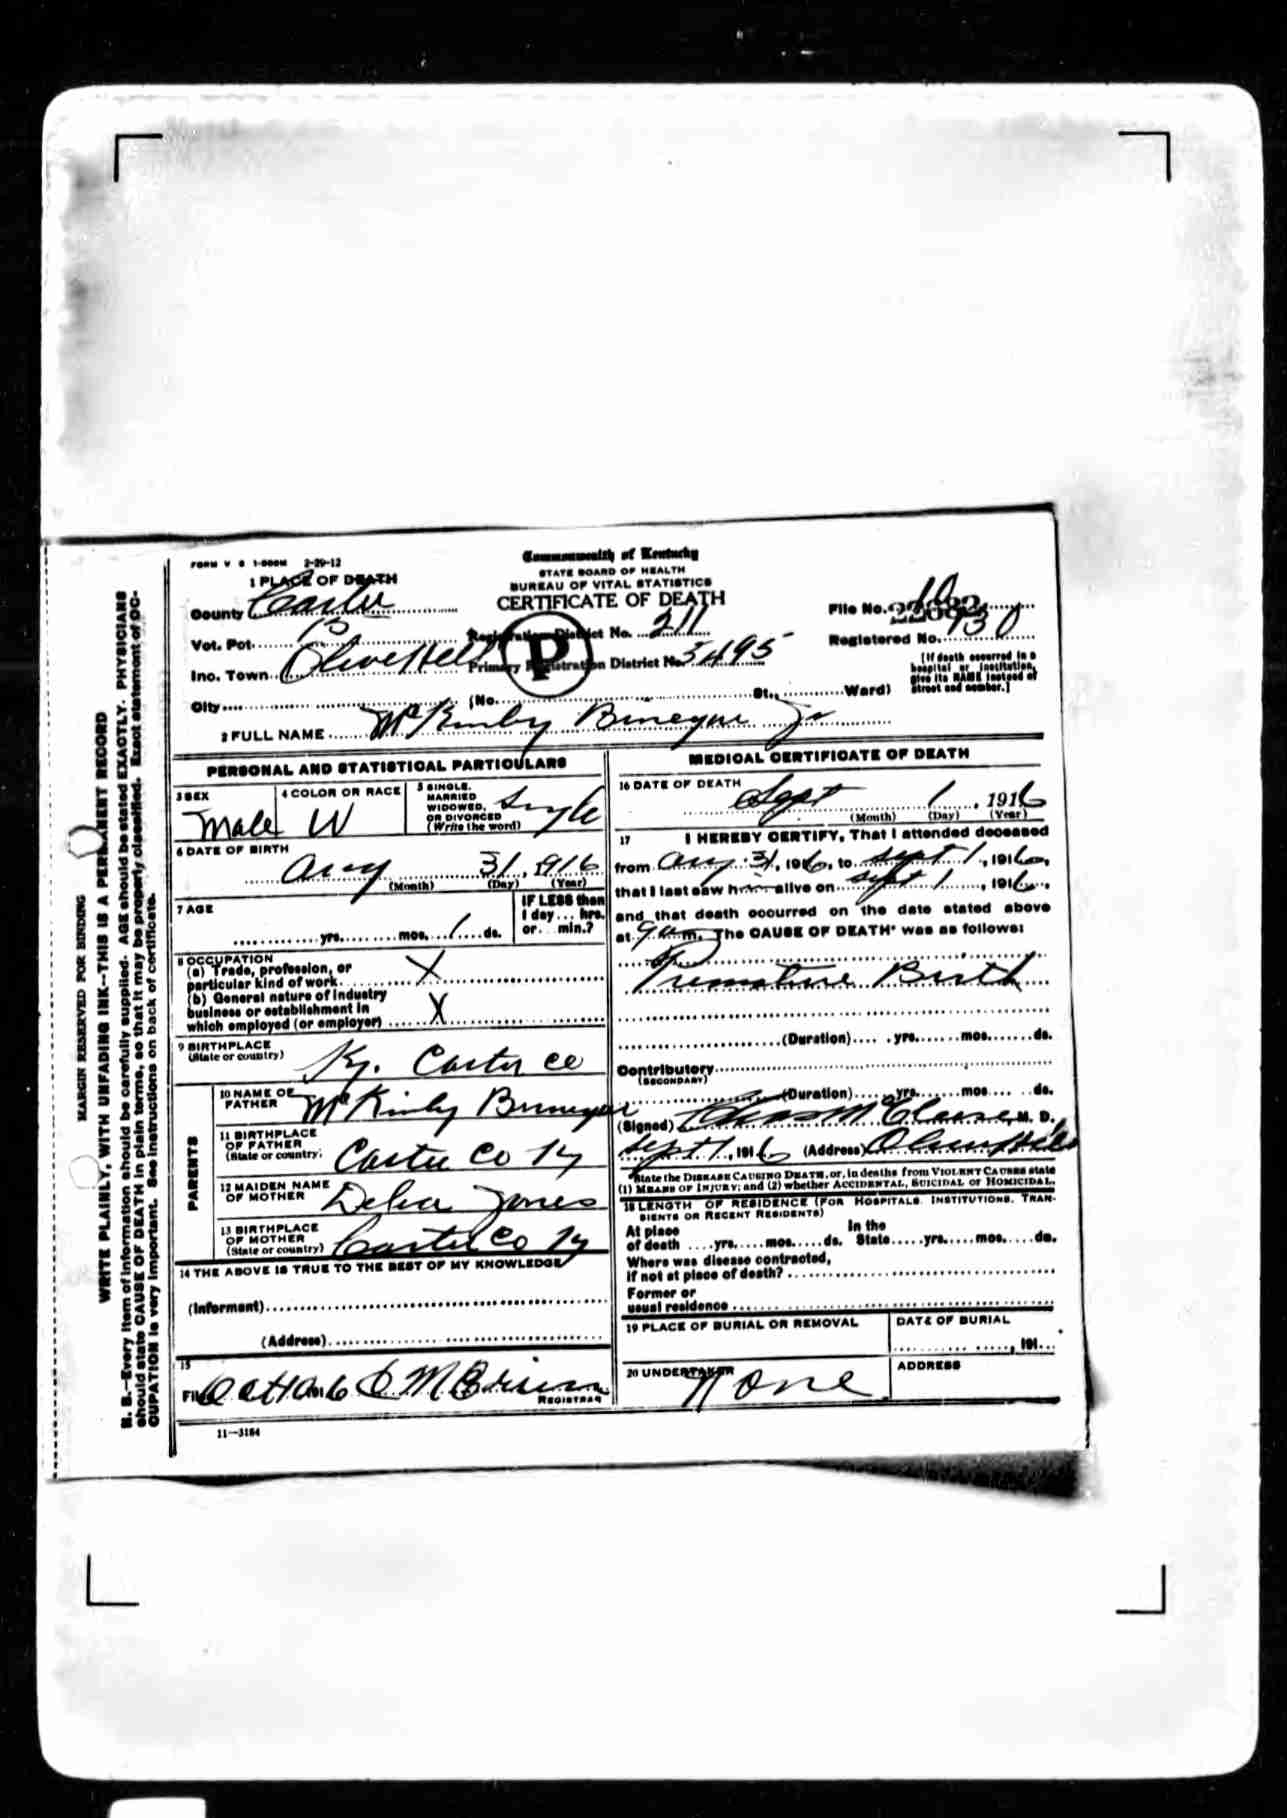 FORM V S 1-500M 2-29-12
Commonwealth of Kentucky
STATE BOARD OF HEALTH
BUREAU OF VITAL STATISTICS
CERTIFICATE OF DEATH
1 PLACE OF DEATH
County Carter
Vot. Pct. 15
Inc. Town Olive Hill
City
Registration District No. 211
Primary Registration District No. 5495
P
File No. 22682
10
Registered No. 130
(No. St., Ward)
[If death occurred in a hospital or institution, give its NAME instead of street and number.]
2 FULL NAME McKinley Binegar Jr
PERSONAL AND STATISTICAL PARTICULARS
3 SEX
Male
4 COLOR OR RACE
W
5 SINGLE, MARRIED WIDOWED, OR DIVORCED (Write the word)
Single
6 DATE OF BIRTH
Aug 31, 1916
(Month) (Day) (Year)
7 AGE
yrs. mos. 1 ds.
IF LESS than 1 day ... hrs. or ... min.?
8 OCCUPATION
(a) Trade, profession, or
particular kind of work X
(b) General nature of industry
business or establishment in
which employed (or employer) X
9 BIRTHPLACE
(State or country)
Ky. Carter Co
PARENTS
10 NAME OF FATHER
McKinley Binegar
11 BIRTHPLACE OF FATHER (State or country)
Carter Co Ky
12 MAIDEN NAME OF MOTHER
Jones
13 BIRTHPLACE OF MOTHER (State or country)
Carter Co Ky
14 THE ABOVE IS TRUE TO THE BEST OF MY KNOWLEDGE
(Informant)
(Address)
15
Filed Oct 10 1916
REGISTRAR
11—3184
MEDICAL CERTIFICATE OF DEATH
16 DATE OF DEATH
Sept 1, 1916
(Month) (Day) (Year)
17 I HEREBY CERTIFY, That I attended deceased
from Aug 31, 1916, to Sept 1, 1916,
that I last saw him alive on Sept 1, 1916,
and that death occurred on the date stated above
at 9 a m. The CAUSE OF DEATH* was as follows:
Premature Birth
(Duration) yrs. mos. ds.
Contributory
(SECONDARY)
(Duration) yrs. mos. ds.
(Signed) M. D.
Sept 1, 1916 (Address) Olive Hill
*State the DISEASE CAUSING DEATH, or, in deaths from VIOLENT CAUSES state
(1) MEANS OF INJURY; and (2) whether ACCIDENTAL, SUICIDAL or HOMICIDAL.
18 LENGTH OF RESIDENCE (FOR HOSPITALS, INSTITUTIONS, TRANSIENTS OR RECENT RESIDENTS)
At place of death yrs. mos. ds. In the State yrs. mos. ds.
Where was disease contracted,
if not at place of death?
Former or
usual residence
19 PLACE OF BURIAL OR REMOVAL
DATE OF BURIAL
, 191
20 UNDERTAKER
None
ADDRESS
MARGIN RESERVED FOR BINDING
WRITE PLAINLY, WITH UNFADING INK—THIS IS A PERMANENT RECORD
N. B.—Every item of information should be carefully supplied. AGE should be stated EXACTLY. PHYSICIANS
should state CAUSE OF DEATH in plain terms, so that it may be properly classified. Exact statement of OC-
CUPATION is very important. See instructions on back of certificate.